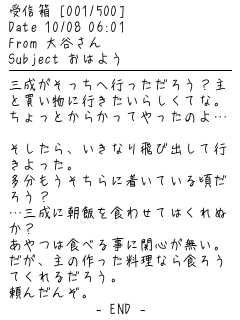 受信箱 [001/500]
Date 10/08 06:01
From 大谷さん
Subject おはよう
三成がそっちへ行っただろう？主
と買い物に行きたいらしくてな。
ちょっとからかってやったのよ…
そしたら、いきなり飛び出して行
きよった。
多分もうそちらに着いている頃だ
ろう？
…三成に朝飯を食わせてはくれぬ
か？
あやつは食べる事に関心が無い。
だが、主の作った料理なら食ろう
てくれるだろう。
頼んだんぞ。
- END -